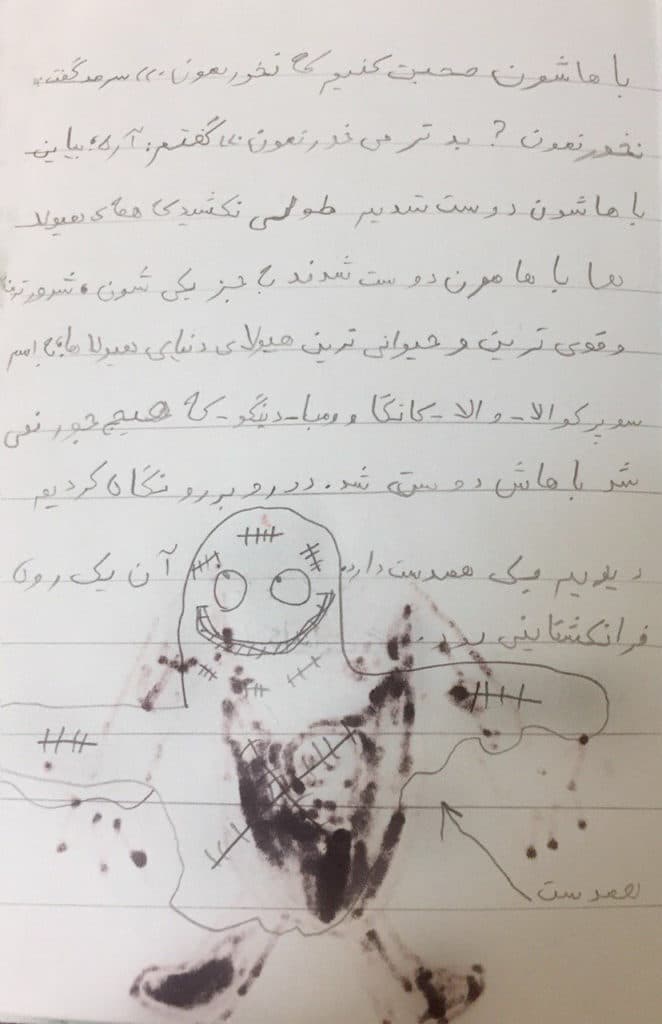 با هاشون صحبت کنیم که نخورنمون... سرمد گفت:
نخورنمون؟ بد تر می خورنمون... گفتم: آره، بیاین
با هاشون دوست شدیم طولی نکشید که همه ی هیولا
ها با هامون دوست شدند به جز یکی شون، شرورترین
و قوی ترین و حیوانی ترین هیولای دنیای هیولا ها، به اسم
سوپر کوالا - والا - کانگا و ومبا - دینگو - که هیچ جور نمی
شد با هاش دوست شد. دور و بر رو نگاه کردیم
دیدیم یک همدست دارد. آن یک روح
فرانکشتاینی بود.
همدست